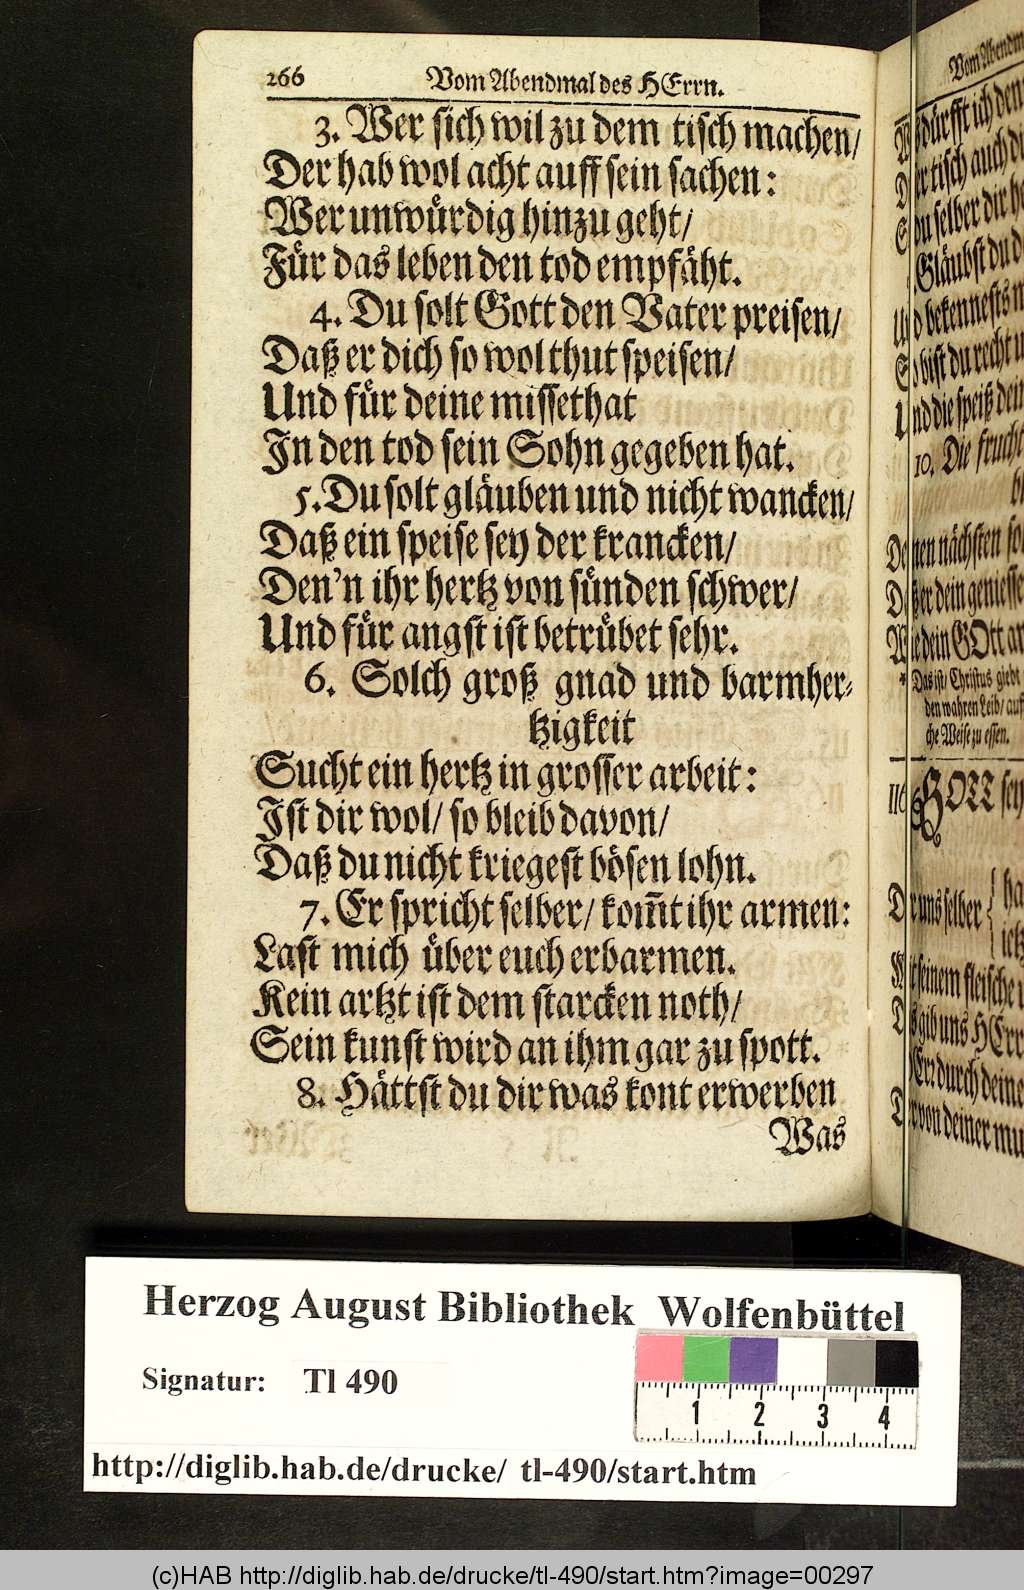 266 Vom Abendmal des HErrn.
3. Wer sich wil zu dem tisch machen/
Der hab wol acht auff sein sachen:
Wer unwürdig hinzu geht/
Für das leben den tod empfäht.
4. Du solt Gott den Vater preisen/
Daß er dich so wol thut speisen/
Und für deine missethat
In den tod sein Sohn gegeben hat.
5. Du solt gläuben und nicht wancken/
Daß ein speise sey der krancken/
Den'n ihr hertz von sünden schwer/
Und für angst ist betrübet sehr.
6. Solch groß gnad und barmher-
tzigkeit
Sucht ein hertz in grosser arbeit:
Ist dir wol/ so bleib davon/
Daß du nicht kriegest bösen lohn.
7. Er spricht selber/ kom̃t ihr armen:
Last mich über euch erbarmen.
Kein artzt ist dem starcken noth/
Sein kunst wird an ihm gar zu spott.
8. Hättst du dir was kont erwerben
Was
Vom Abendm
dürfft ich den
tisch auch
selber dir
Gläubst du
bekennests
bist du recht
und die speiß dein
10. Die frucht
nächsten
er dein geniesse
dein GOtt
Das ist/ Christus giebt
den wahren Leib/ auf
che Weise zu essen.
116 GOTT sey
uns selber
seinem fleische
gib uns HErr
durch deine
von deiner
Herzog August Bibliothek Wolfenbüttel
Signatur: Tl 490
1 2 3 4
http://diglib.hab.de/drucke/ tl-490/start.htm
(c)HAB http://diglib.hab.de/drucke/tl-490/start.htm?image=00297